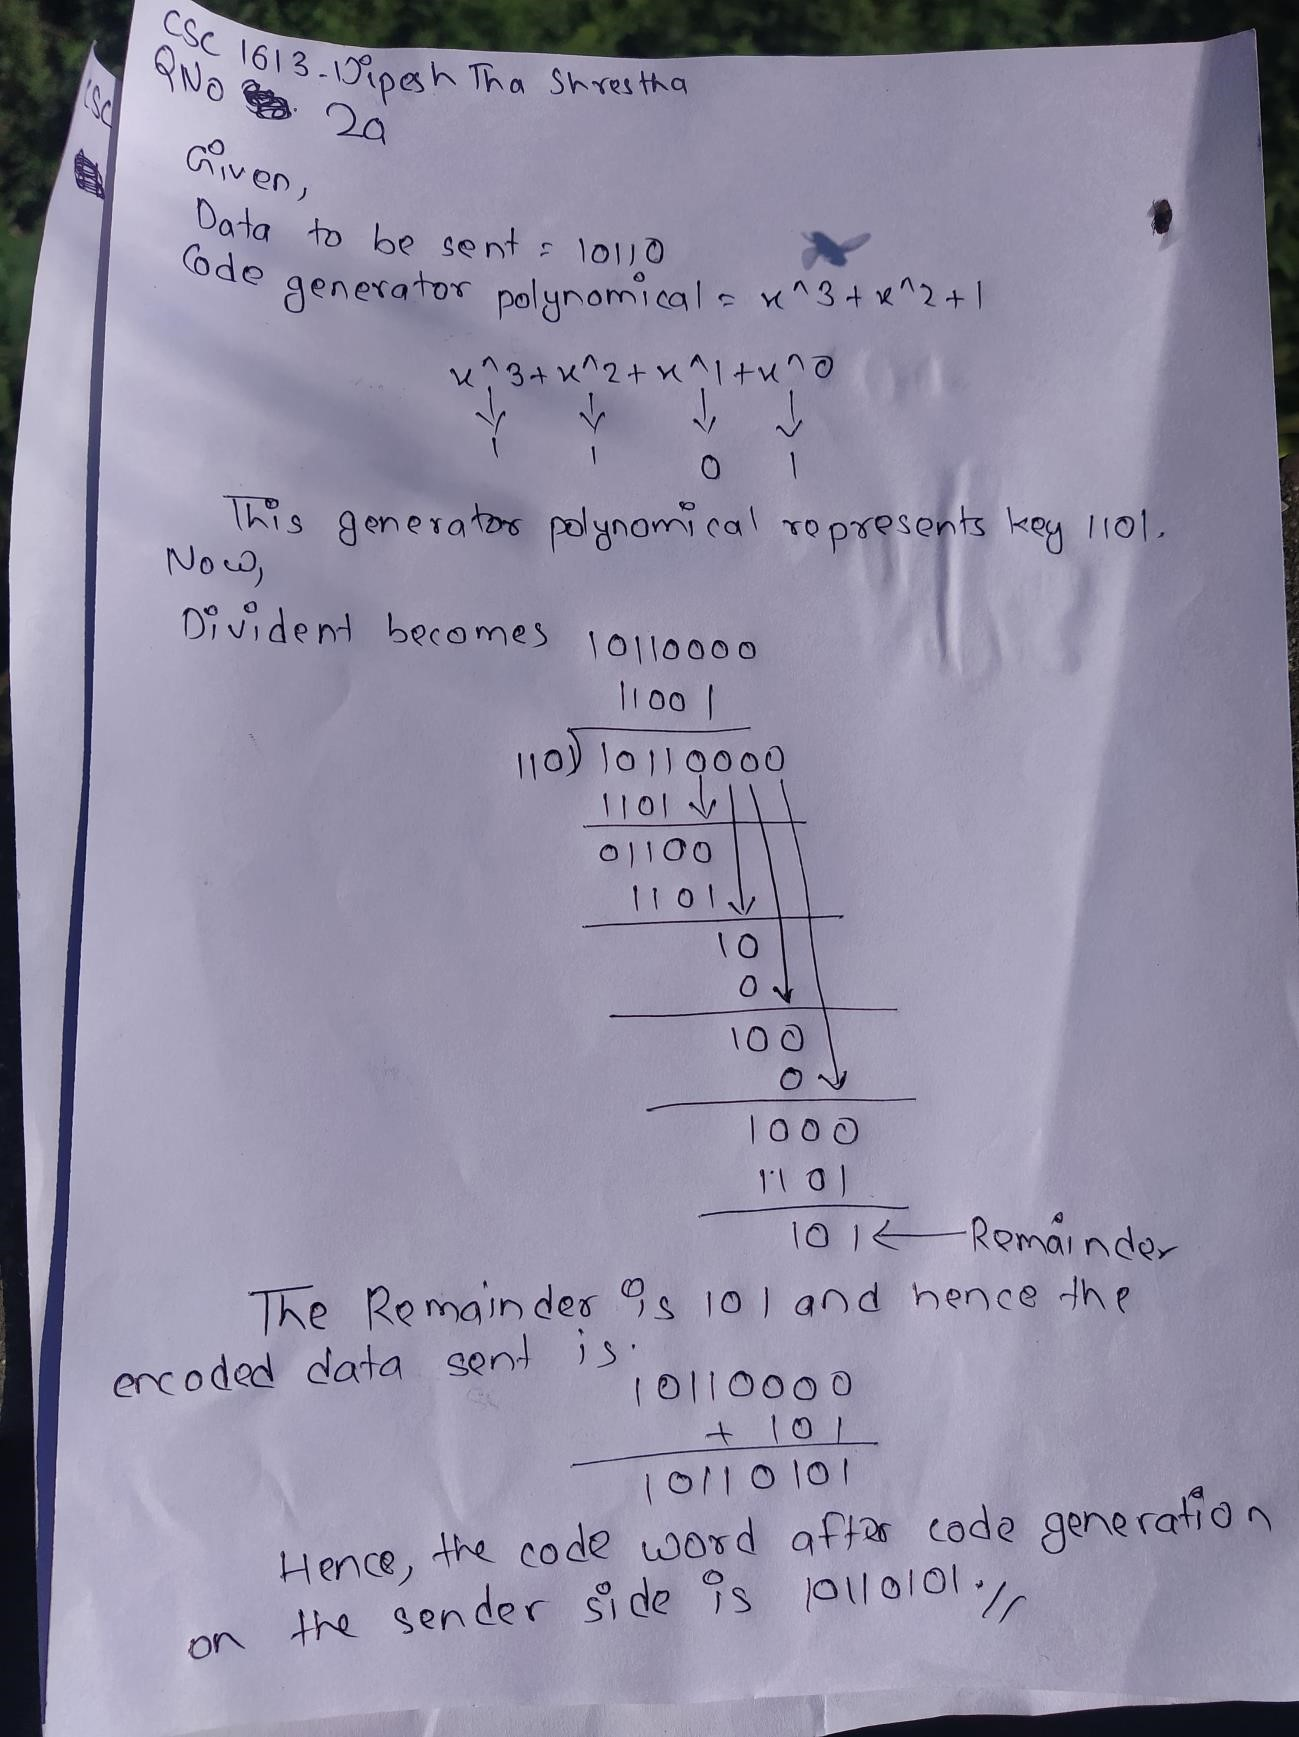 CSC 1613-Dipesh Jha Shrestha
QNO 2a
Given,
Data to be sent = 10110
Code generator polynomical = x^3+x^2+1
x^3+x^2+x^1+x^0
1 1 0 1
This generator polynomical represents key 1101.
Now,
Divident becomes 10110000
11001
1101) 10110000
1101
01100
1101
10
0
100
0
1000
1101
101 ← Remainder
The Remainder is 101 and hence the
encoded data sent is.
10110000
+ 101
10110101
Hence, the code word after code generation
on the sender side is 10110101.//